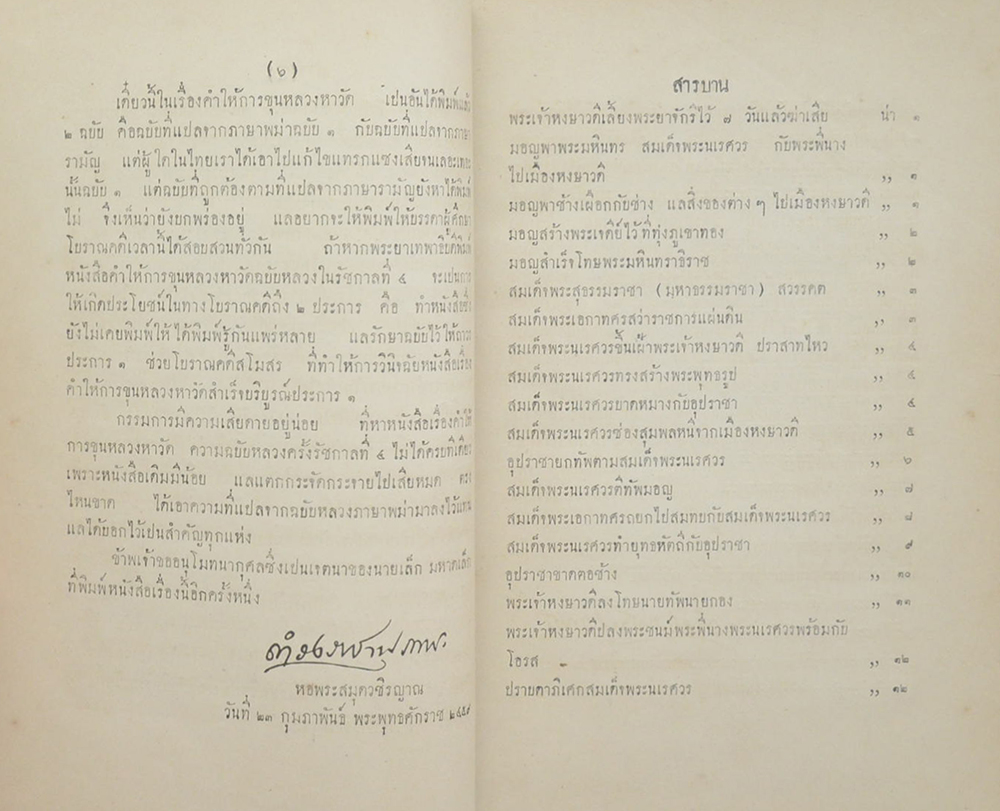 (๖)
เดี๋ยวนี้ในเรื่องคำให้การขุนหลวงหาวัด เปนอันได้พิมพ์แล้ว
๒ ฉบับ คือฉบับที่แปลจากภาษาพม่าฉบับ ๑ กับฉบับที่แปลจากภาษา
รามัญ แต่ผู้ใดในไทยเราได้เอาไปแก้ไขแทรกแซงเสียจนเลอะเทอะ
นั้นฉบับ ๑ แต่ฉบับที่ถูกต้องตามที่แปลจากภาษารามัญยังหาได้พิมพ์
ไม่ จึงเห็นว่ายังบกพร่องอยู่ แลอยากจะให้พิมพ์ให้บรรดาผู้ศึกษา
โบราณคดีเวลานี้ได้สอบสวนทั่วกัน ถ้าหากพระยาเทพาธิบดีพิมพ์
หนังสือคำให้การขุนหลวงหาวัดฉบับหลวงในรัชกาลที่ ๔ จะเปนการ
ให้เกิดประโยชน์ในทางโบราณคดีถึง ๒ ประการ คือ ทำหนังสือซึ่ง
ยังไม่เคยพิมพ์ให้ได้พิมพ์รู้กันแพร่หลาย แลรักษาฉบับไว้ให้ถาวร
ประการ ๑ ช่วยโบราณคดีสโมสร ที่ทำให้การวินิจฉัยหนังสือเรื่อง
คำให้การขุนหลวงหาวัดสำเร็จบริบูรณ์ประการ ๑
กรรมการมีความเสียดายอยู่น่อย ที่หาหนังสือเรื่องคำให้
การขุนหลวงหาวัด ความฉบับหลวงครั้งรัชกาลที่ ๔ ไม่ได้ครบทีเดียว
เพราะหนังสือเดิมมีน้อย แลแตกกระจัดกระจายไปเสียหมด ตรง
ไหนขาด ได้เอาความที่แปลจากฉบับหลวงภาษาพม่ามาลงไว้แทน
แลได้บอกไว้เปนสำคัญทุกแห่ง
ข้าพเจ้าขออนุโมทนากุศลซึ่งเปนเจตนาของนายเล็ก มหาดเล็ก
ที่พิมพ์หนังสือเรื่องนี้อีกครั้งหนึ่ง
ดำรงราชานุภาพ
หอพระสมุดวชิรญาณ
วันที่ ๒๓ กุมภาพันธ์ พระพุทธศักราช ๒๔๕๙
สารบาน
พระเจ้าหงษาวดีเลี้ยงพระยาจักรีไว้ ๗ วันแล้วฆ่าเสีย น่า ๑
มอญพาพระมหินทร สมเด็จพระนเรศวร กับพระพี่นาง
ไปเมืองหงษาวดี ,, ๑
มอญพาช้างเผือกกับช่าง แลสิ่งของต่าง ๆ ไปเมืองหงษาวดี ,, ๑
มอญสร้างพระเจดีย์ไว้ที่ทุ่งภูเขาทอง ,, ๒
มอญสำเร็จโทษพระมหินทราธิราช ,, ๒
สมเด็จพระสุธรรมราชา (มหาธรรมราชา) สวรรคต ,, ๓
สมเด็จพระเอกาทศรสว่าราชการแผ่นดิน ,, ๓
สมเด็จพระนเรศวรขึ้นเฝ้าพระเจ้าหงษาวดี ปราสาทไหว ,, ๔
สมเด็จพระนเรศวรทรงสร้างพระพุทธรูป ,, ๔
สมเด็จพระนเรศวรบาดหมางกับอุปราชา ,, ๔
สมเด็จพระนเรศวรซ่องสุมพลหนีจากเมืองหงษาวดี ,, ๕
อุปราชายกทัพตามสมเด็จพระนเรศวร ,, ๖
สมเด็จพระนเรศวรตีทัพมอญ ,, ๗
สมเด็จพระเอกาทศรถยกไปสมทบกับสมเด็จพระนเรศวร ,, ๘
สมเด็จพระนเรศวรทำยุทธหัตถีกับอุปราชา ,, ๙
อุปราชาขาดคอช้าง ,, ๑๐
พระเจ้าหงษาวดีลงโทษนายทัพนายกอง ,, ๑๑
พระเจ้าหงษาวดีปลงพระชนม์พระพี่นางพระนเรศวรพร้อมกับ
โอรส ,, ๑๒
ปราบดาภิเศกสมเด็จพระนเรศวร ,, ๑๒